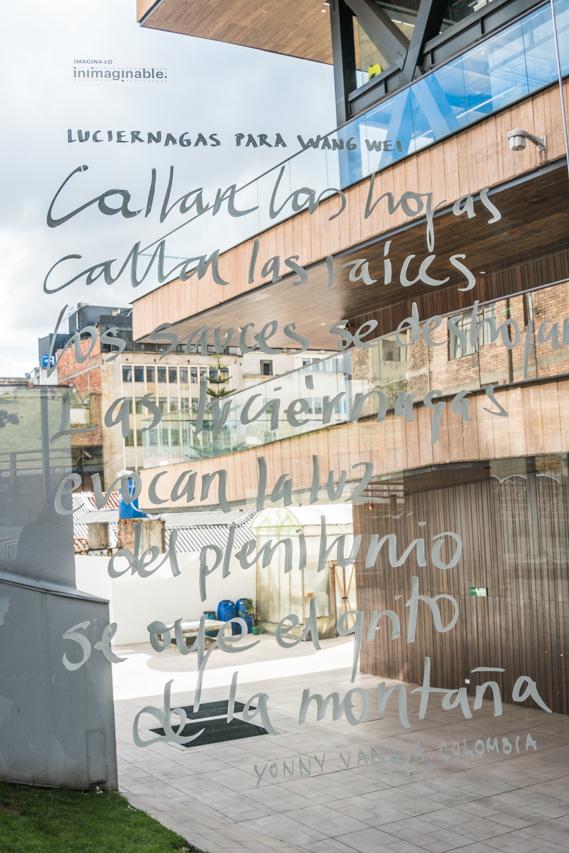 IMAGINA·LO
inimaginable.
LUCIERNAGAS PARA WANG WEI
Callan las hojas
callan las raíces
los sauces se deshojan
Las luciérnagas
evocan la luz
del plenilunio
se oye el grito
de la montaña
YONNY COLOMBIA